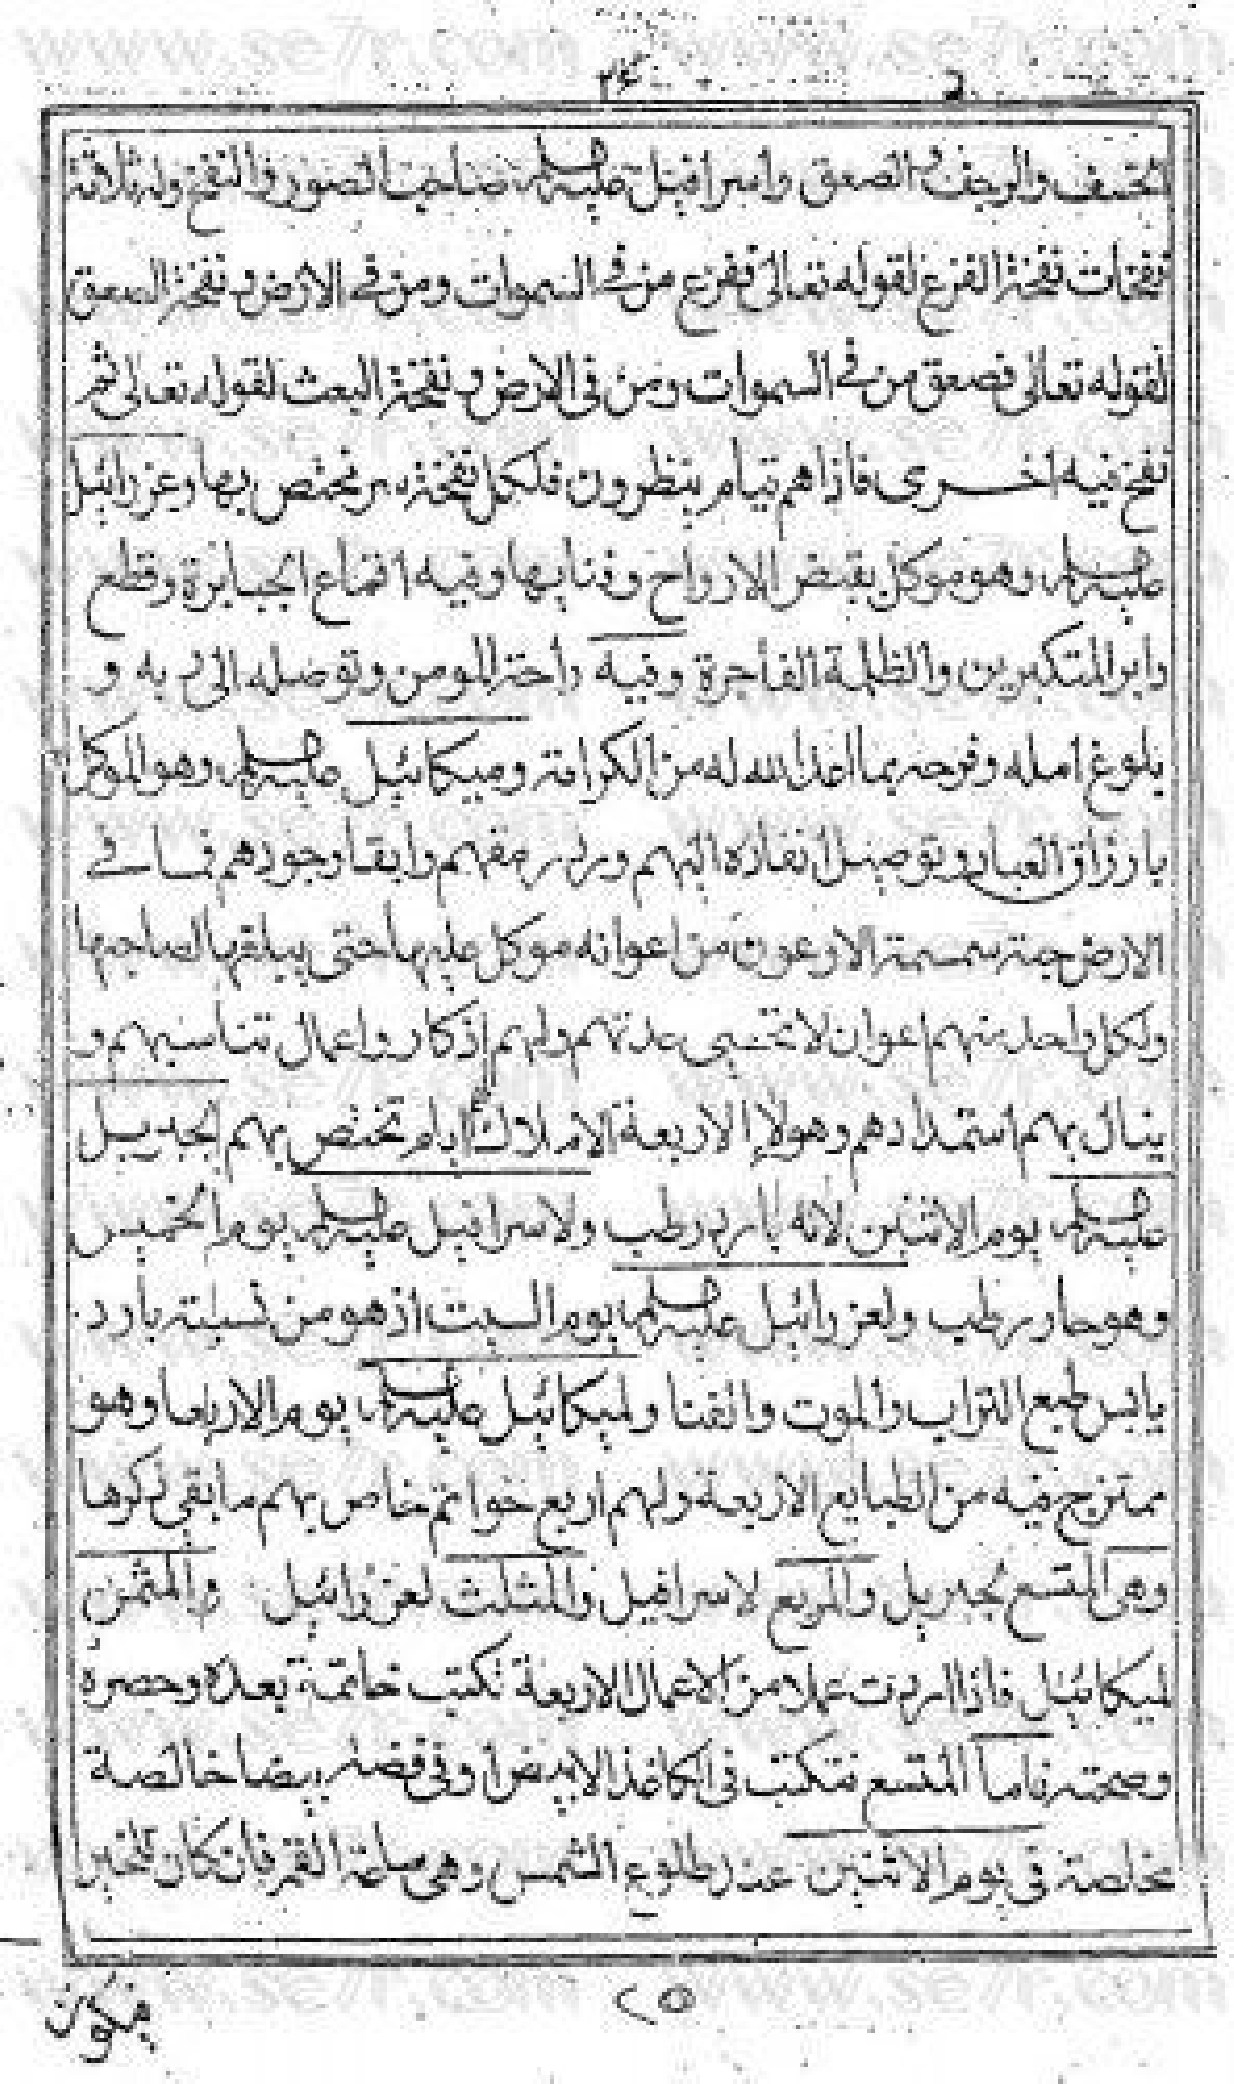 www.se7r.com www.se7r.com
٢٤
الخسف والرجف والصعق واسرافيل عليه السلام صاحب الصور والنفخ وله ثلاثة
نفخات نفخة الفزع لقوله تعالى ففزع من في السموات ومن في الارض ونفخة الصعق
لقوله تعالى فصعق من في السموات ومن في الارض ونفخة البعث لقوله تعالى ثم
نفخ فيه اخرى فاذا هم قيام ينظرون فلكل نفخة سر مختص بها وعزرائيل
عليه السلام وهو موكل بقبض الارواح وفنايها وفيه اقماع الجبابرة وقطع
دابر المتكبرين والظلمة الفاجرة وفيه راحة المومن وتوصله الى ربه و
بلوغ امله وفرحه بما اعد الله له من الكرامة وميكائيل عليه السلام وهو الموكل
بارزاق العباد وتوصيل انفاذه اليهم ودر رمقهم وابقا وجودهم فما في
الارض حبة سمسمة الا وعون من اعوانه موكل عليها حتى يبلغها لصاحبها
ولكل واحد منهم اعوان لا تحصى عدتهم ولهم اذكار واعمال تناسبهم و
ينال بهم استمدادهم وهولا الاربعة الاملاك ايام تختص بهم لجبريل
عليه السلام يوم الاثنين لانه بارد رطب ولاسرافيل عليه السلام يوم الخميس
وهو حار رطب ولعزرائيل عليه السلام يوم السبت اذ هو من نسبته بارد
يابس طبع التراب والموت والفنا ولميكائيل عليه السلام يوم الاربعا وهو
ممتزج فيه من الطبايع الاربعة ولهم اربع خواتم خاص بهم ما بقى ذكرها
وهى المتسع لجبريل والمربع لاسرافيل والمثلث لعزرائيل والمثمن
لميكائيل فاذا اردت عملا من الاعمال الاربعة تكتب خاتمة بعده وحصره
وصحته فاما المتسع فتكتب في الكاغد الابيض او في فضة بيضا خالصة
خالصة في يوم الاثنين عند طلوع الشمس وهي ساعة القمر فان كان للخير
فيكون
٢٥
www.se7r.com www.se7r.com